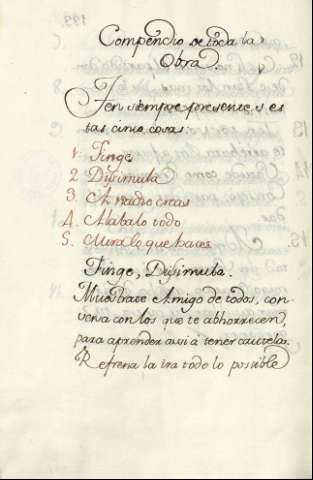 Compendio de toda la
Obra
Ten siempre presentes es
tas cinco cosas.
1. Finge
2. Disimula
3. A nadie creas
4. Alabalo todo
5. Mira lo que haces
Finge, Disimula.
Muestrate Amigo de todos, con
versa con los que te abhorrecen,
para aprender assi â tener cautelas.
Refrena la ira todo lo possible